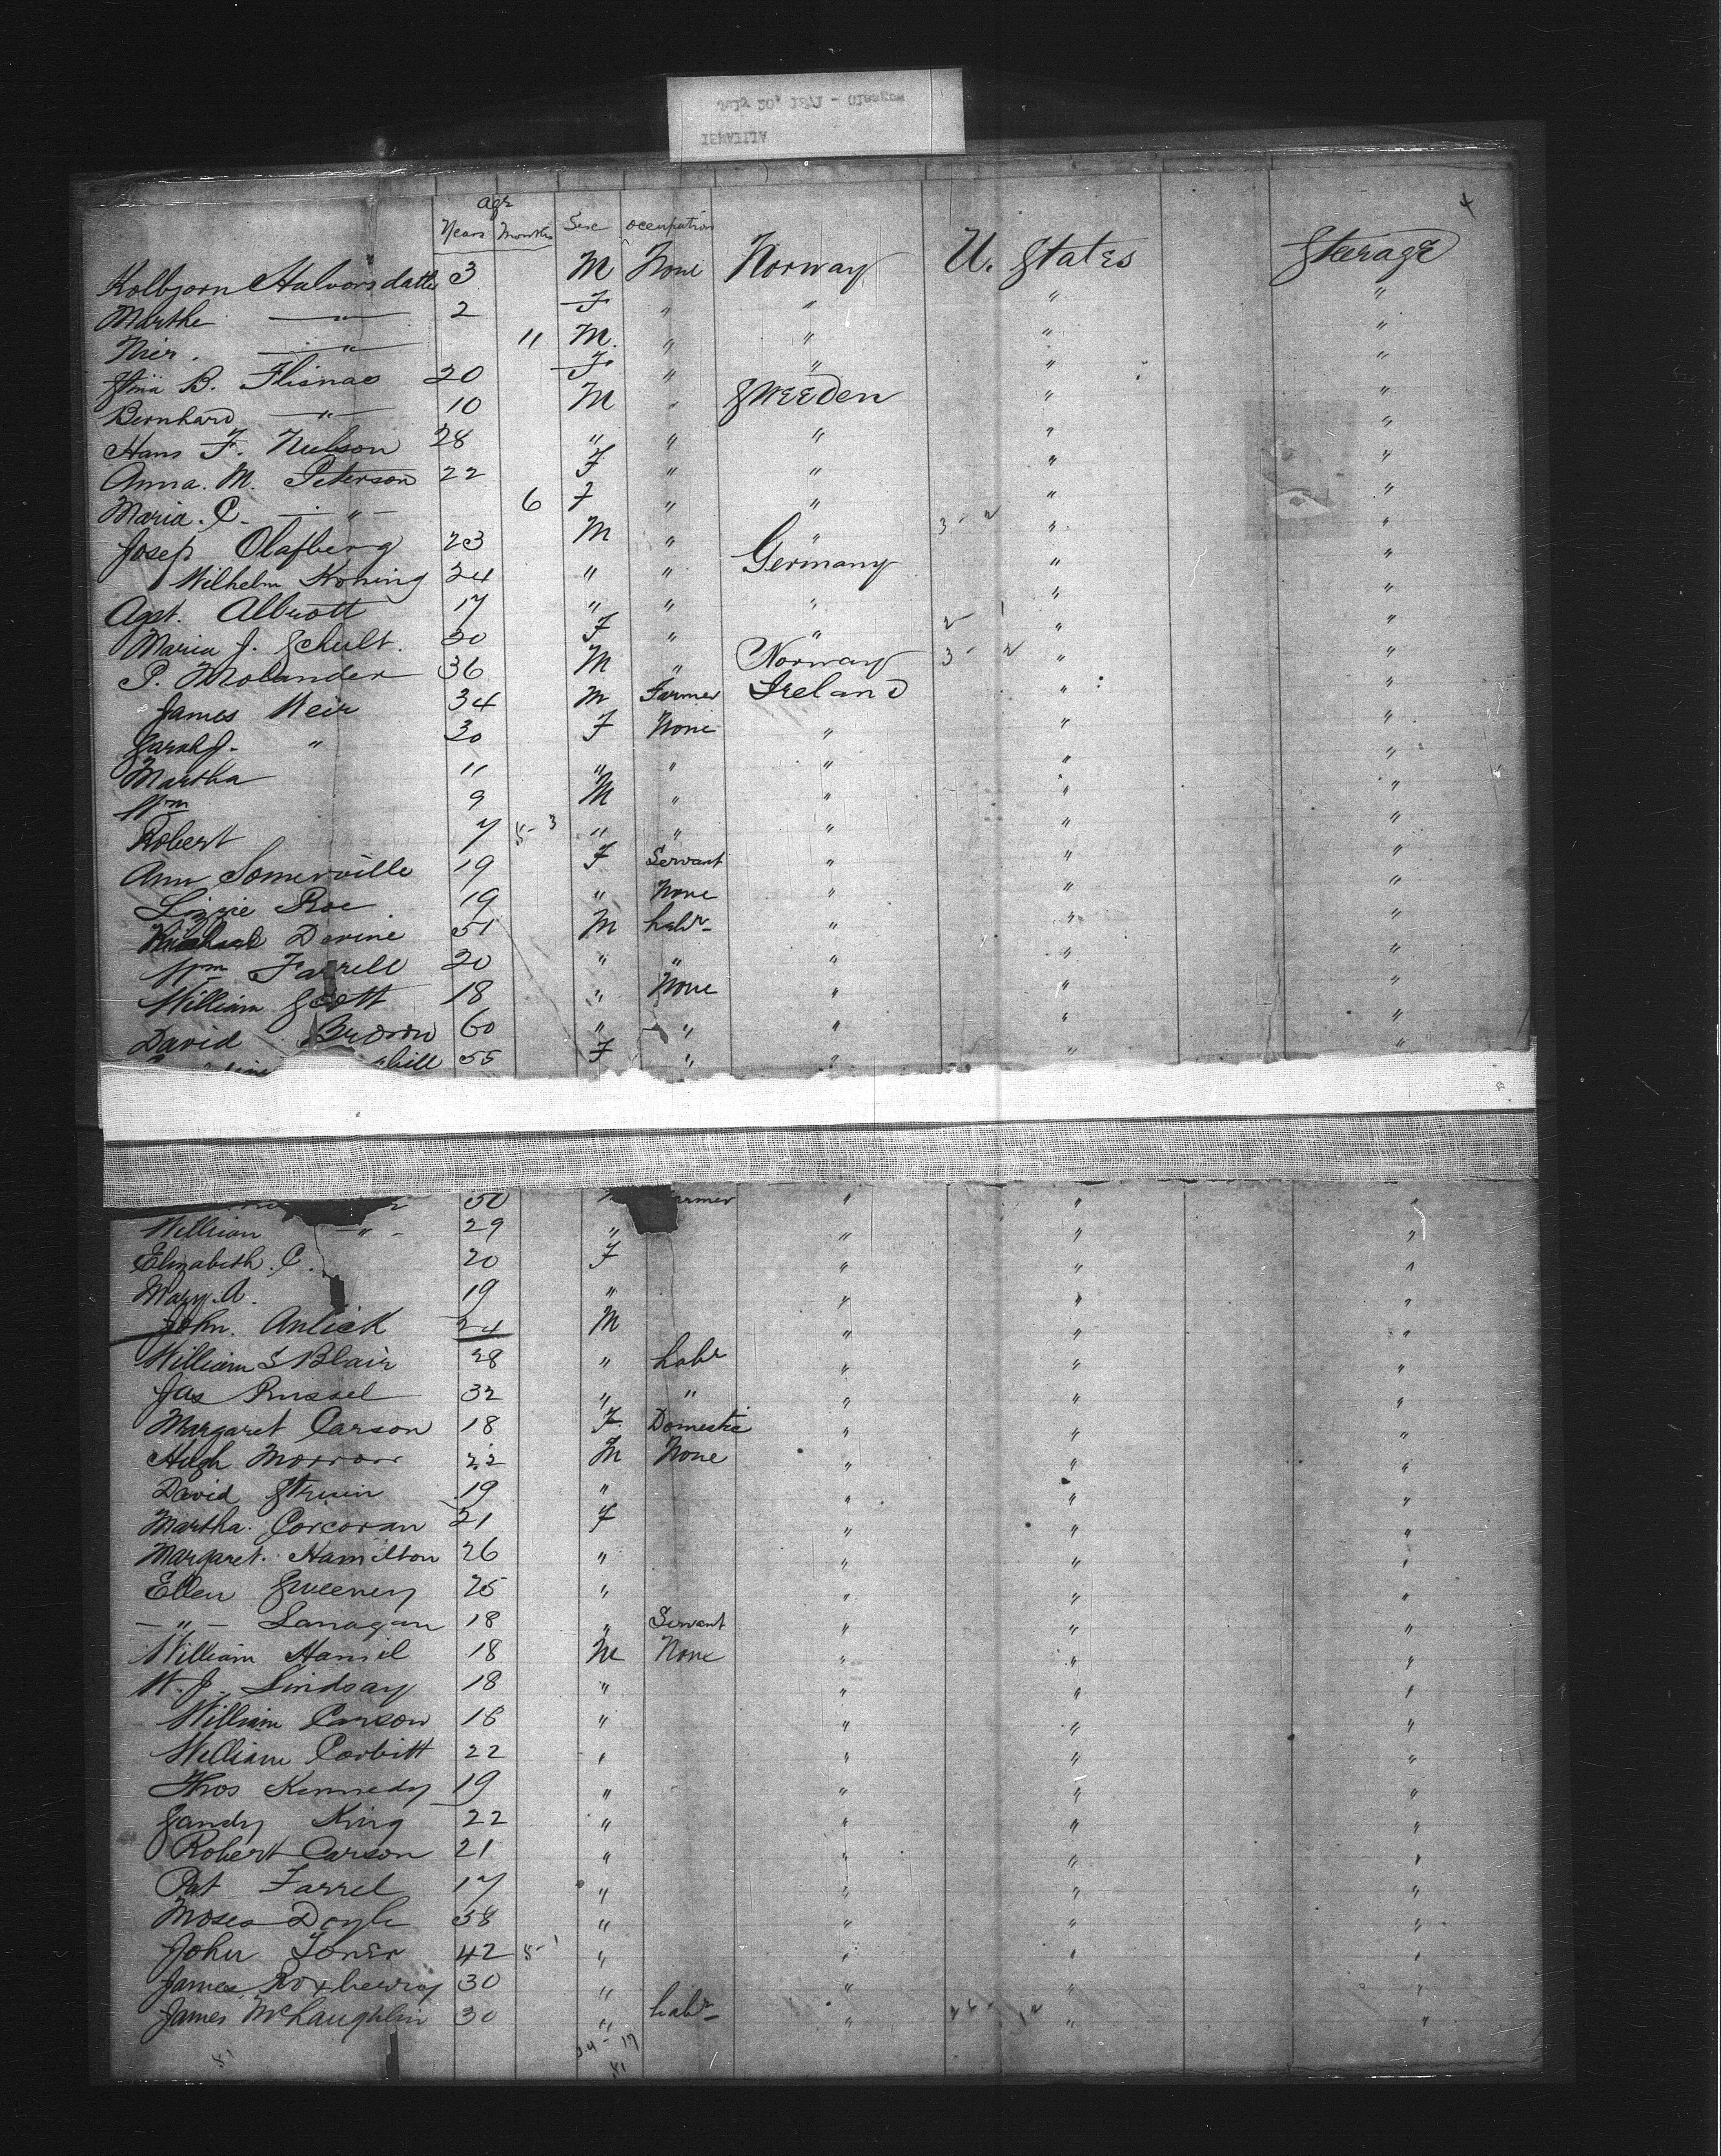 July 20, 1871 - Glasgow
ISMAILIA
4
age
Years Months Sex occupation
Kolbjorn Halvorsdatter 3 M None Norway U. States Steerage
Marthe " 2 F " " " "
" 11 M. " " " "
B. Flisnao 20 F " " " "
Bernhard " 10 M " Sweeden " "
Hans F. Nielson 28 " " " " "
Anna. M. Peterson 22 F " " " "
Maria. C. " 6 F " " " "
Josep Olafberg 23 M " " 3 - " "
Wilhelm Koning 24 " " Germany " "
Agst. Albrott 17 " " " " "
Maria J. Schult. 20 F " " 2 1 " "
P. Molander 36 M " Norway 3 - " "
James Weir 34 M Farmer Ireland " "
Sarah J. " 30 F None " " "
Martha 11 " " " " "
Wm 9 M " " " "
Robert 7 5 - 3 " " " " "
Ann Somerville 19 F Servant " " "
Lizzie Roe 19 " None " " "
Michael Devine 51 M Labr " " "
Wm Farrell 20 " " " " "
William Scott 18 " None " " "
David Brown 60 " " " " "
hill 55 F " " " "
50 armer " " "
William " 29 " " " "
Elizabeth. C. 20 F " " "
Mary. A. 19 " " " "
John. Aulick 24 M " " "
William S Blair 28 " Labr " " "
Jas Russel 32 " " " " "
Margaret Carson 18 F. Domestic " " "
Hugh Morrow 22 M None " " "
David Struin 19 " " " "
Martha. Corcoran 21 F " " "
Margaret. Hamilton 26 " " " "
Ellen Sweeney 25 " " " "
" Lanagan 18 " Servant " " "
William Hamil 18 M None " " "
W. J. Lindsay 18 " " " "
William Carson 18 " " " "
William Corbitt 22 " " " "
Thos Kennedy 19 " " " "
Sandy King 22 " " " "
Robert Carson 21 " " " "
Pat Farrel 17 " " " "
Moses Doyle 58 " " " "
John Toner 42 5 - 1 " " " "
James Roxberry 30 " " " "
James McLaughlin 30 " Labr " " "
34 - 17
51 51